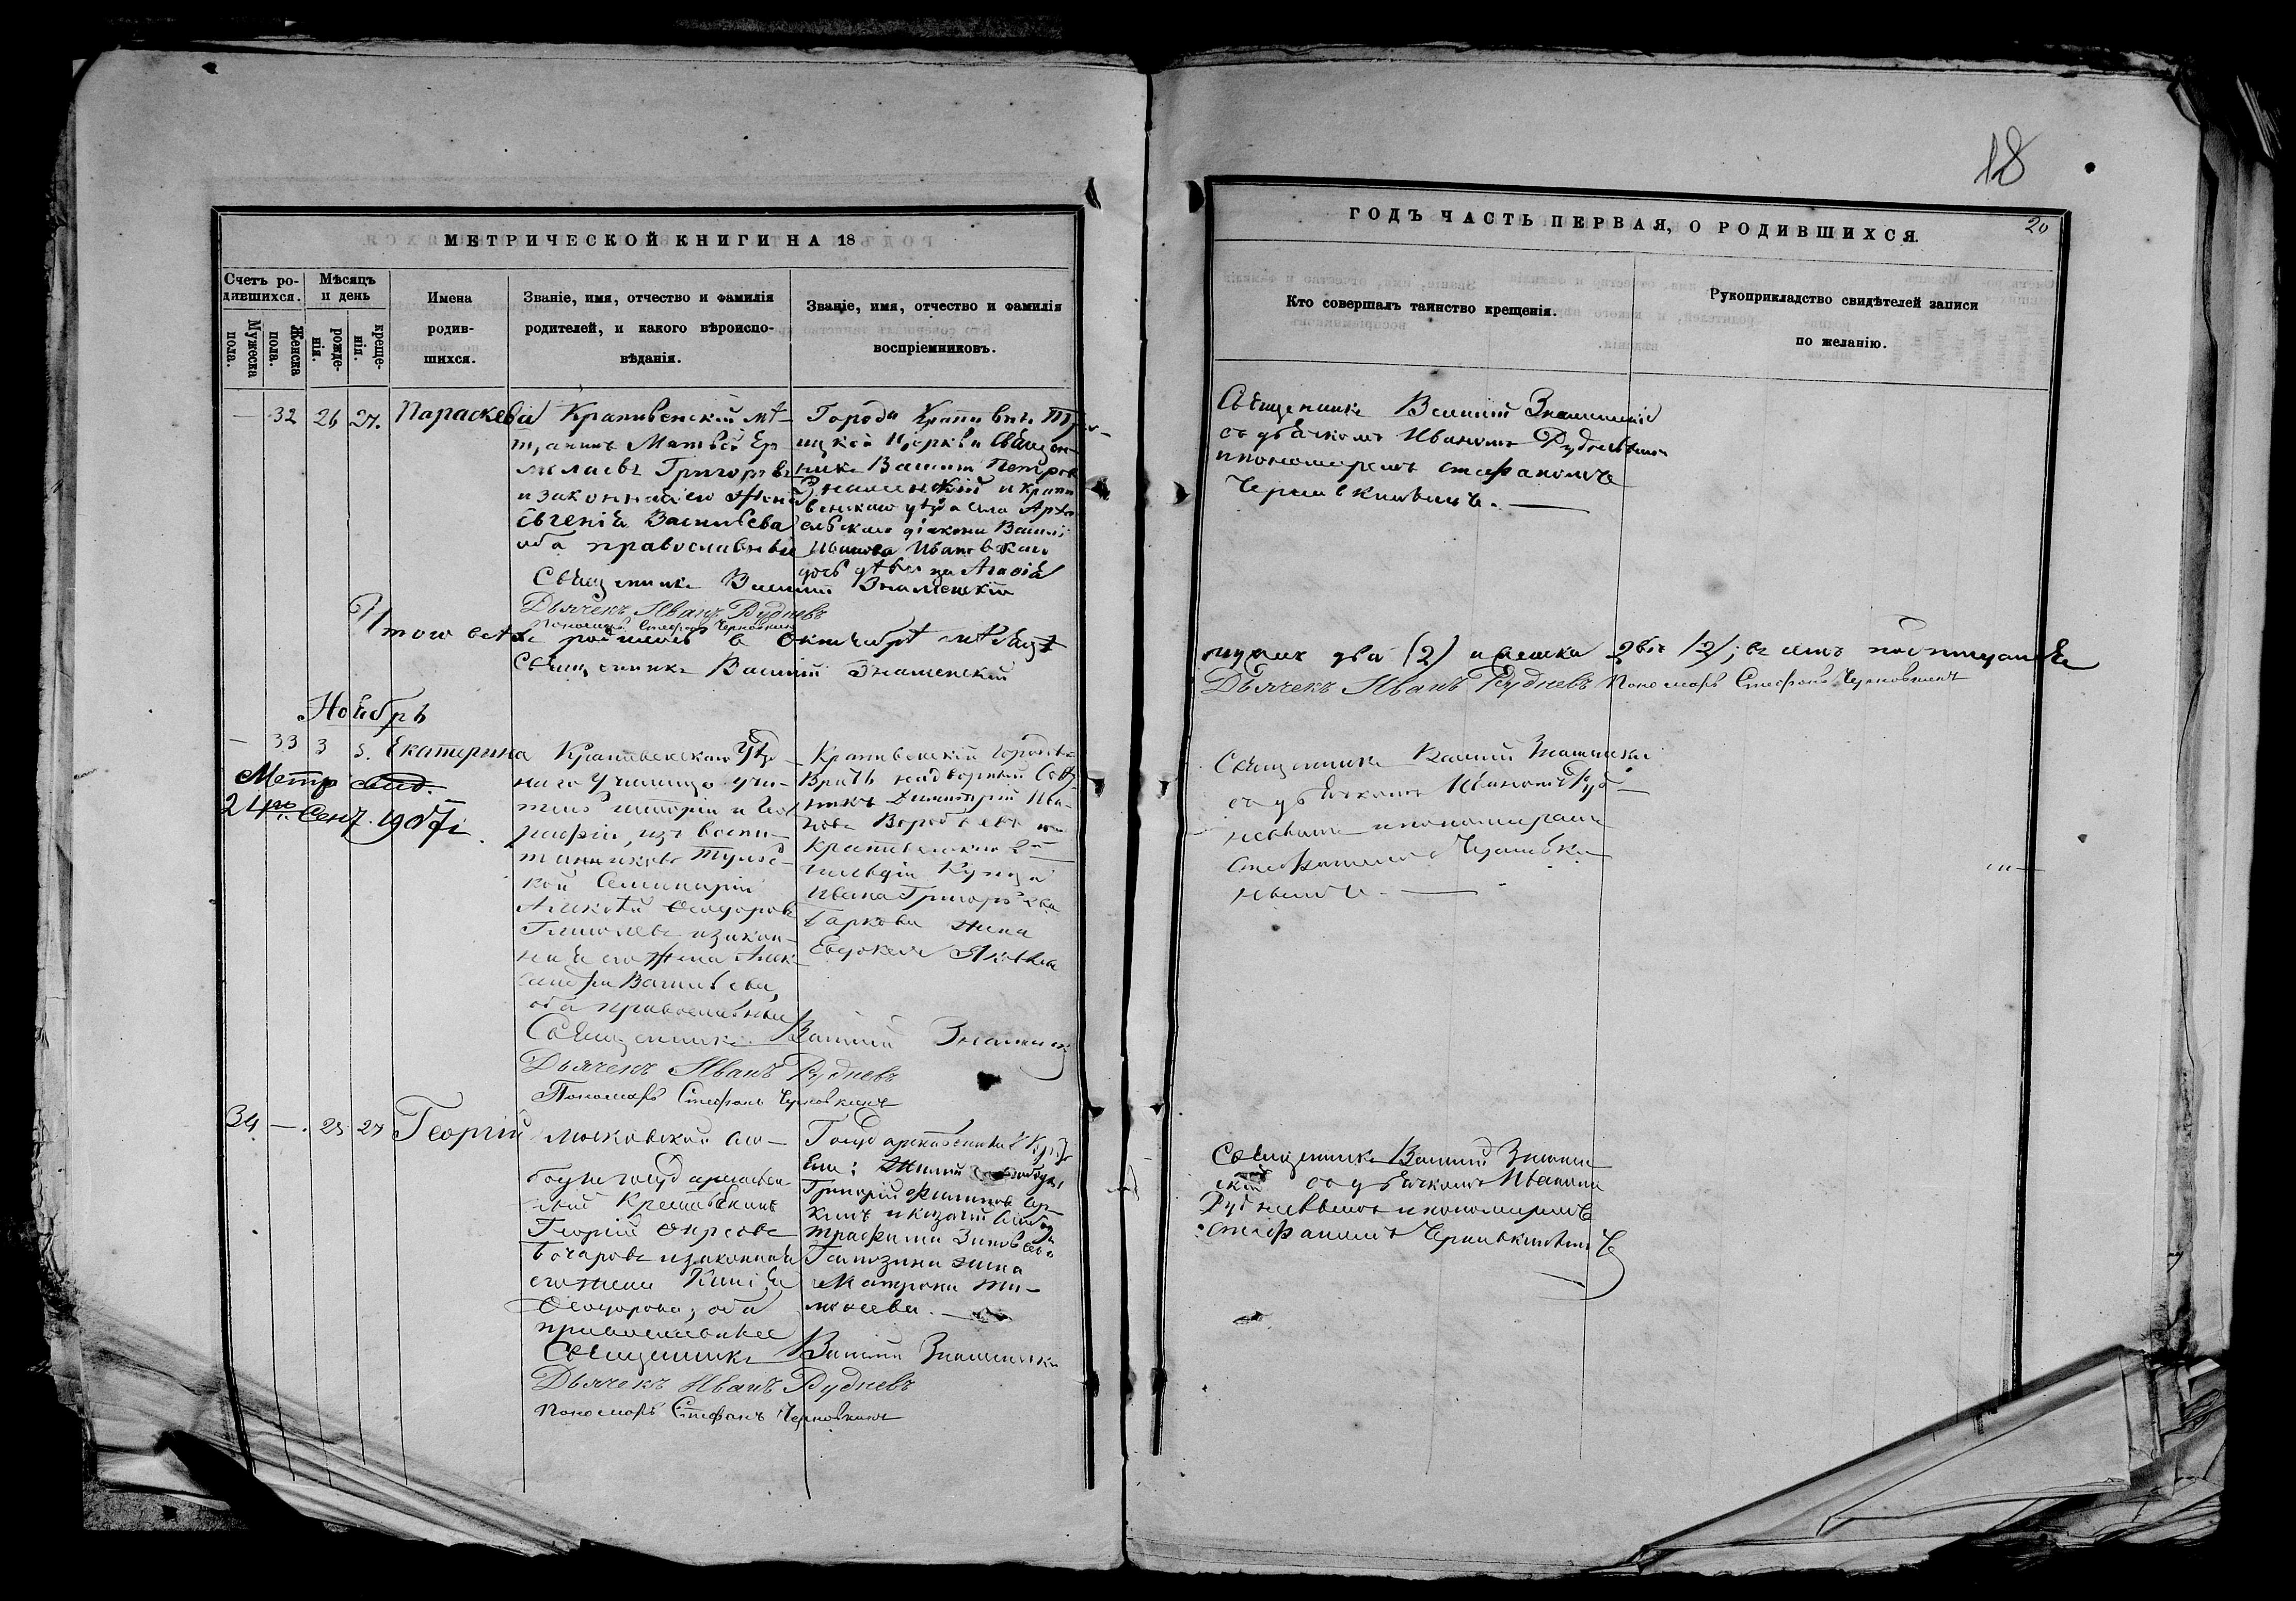 18
МЕТРИЧЕСКОЙ КНИГИ НА 18
ГОДЪ ЧАСТЬ ПЕРВАЯ, О РОДИВШИХСЯ.
20
Счетъ ро-
дившихся.
Мужеска
пола.
Женска
пола.
Мѣсяцъ
и день
рожде-
нія.
креще-
нія.
Имена
родив-
шихся.
Званіе, имя, отчество и фамилія
родителей, и какого вѣроиспо-
вѣданія.
Званіе, имя, отчество и фамилія
воспріемниковъ.
Кто совершалъ таинство крещенія.
Рукоприкладство свидѣтелей записи
по желанію.
— 32 26 27. Параскевія
Крапивенскій мѣ-
щанинъ Матвей Ер
молаевъ Григорьевъ
и законная его жена
Евгенія Васильева
оба православные
Города Крапивны Тро-
ицкой Церкви Священ-
никъ Василій Петровъ
Знаменскій и Крапи
венскаго уѣзда села Архан
ельскаго діакона Василі
Иванова Ивановскаго
дочь дѣвица Агафія
Священникъ Василій Знаменскій
Дьячекъ Иванъ Рудневъ
Пономарь Стефанъ Черновкинъ
Священникъ Василій Знаменскій
съ дьячкомъ Иваномъ Рудневымъ
и пономаремъ Стефаномъ
Черновкинымъ. —
Итого всѣхъ родилось в Октябрѣ мѣсяцѣ
мужеск два (2) и женска двѣ (2); въ чемъ подписуемся
Священникъ Василій Знаменскій
Дьячекъ Иванъ Рудневъ Пономарь Стефанъ Черновкинъ
Ноябрь
— 33 3 5. Екатерина
Метр
24го Сент. 1907 г.
Крапивенскаго Уѣзд-
наго Училища учи-
тель исторіи и Гео-
графіи, изъ воспи-
танниковъ Тульс-
кой Семинаріи
Алексѣй Ѳеодоровъ
и закон-
ная его жена Алек-
сандра Васильева,
оба православные
Крапивенскій Городовой
Врачъ надворный Совѣ
тникъ Димитрій Ива-
новъ Воробьевъ и
Крапивенскаго 2й
гильдіи Купца
Ивана Григорьева
Баркова жена
Евдокея Яковлева
Священникъ Василій Знаменскій
Дьячекъ Иванъ Рудневъ
Пономарь Стефанъ Черновкинъ
Священникъ Василій Знаменскій
съ дьячкомъ Иваномъ Руд-
невымъ и пономаремъ
Стефаномъ Черновки-
нымъ. —
34. —. 25 27 Георгій
Московской сло-
боды государствен
ный Крестьянинъ
Георгій
Бочаровъ и законная
его жена
Ѳеодорова; оба
православные
Государственные Крес
яне: Жилой слободы
Григорій Филиповъ
и казачій слободы
Трафима Зиновьева
жена
Матрона Ти-
мофеева. —
Священникъ Василій Знаменскій
Дьячекъ Иванъ Рудневъ
Пономарь Стефанъ Черновкинъ
Священникъ Василій Знамен
скій съ дьячкомъ Иваномъ
Рудневымъ и пономаремъ
Стефаномъ Черновкинымъ